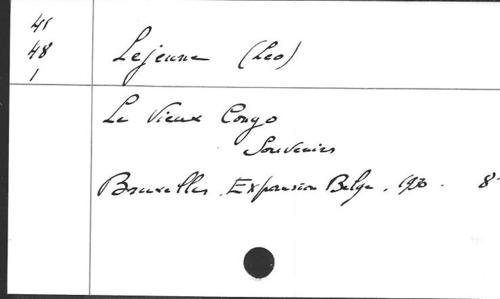 41
48
1
Lejeune (Leo)
Le Vieux Congo
Souvenirs
Bruxelles, Expansion Belge, 1930. 8°